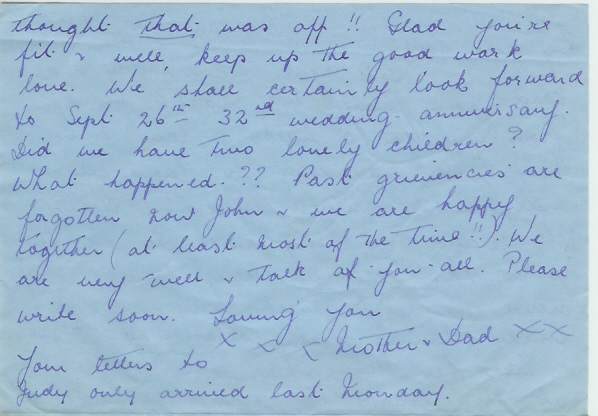 thought that was off!! Glad you're
fit & well, keep up the good work
love. We shall certainly look forward
to Sept 26th 32nd wedding anniversary.
Did we have two lovely children?
What happened.?? Past grieviencies are
forgotten now John & we are happy
together (at least most of the time!!). We
are very well & talk of you all. Please
write soon. Loving you
x x x Mother & Dad xx
Your letters to
Judy only arrived last Monday.